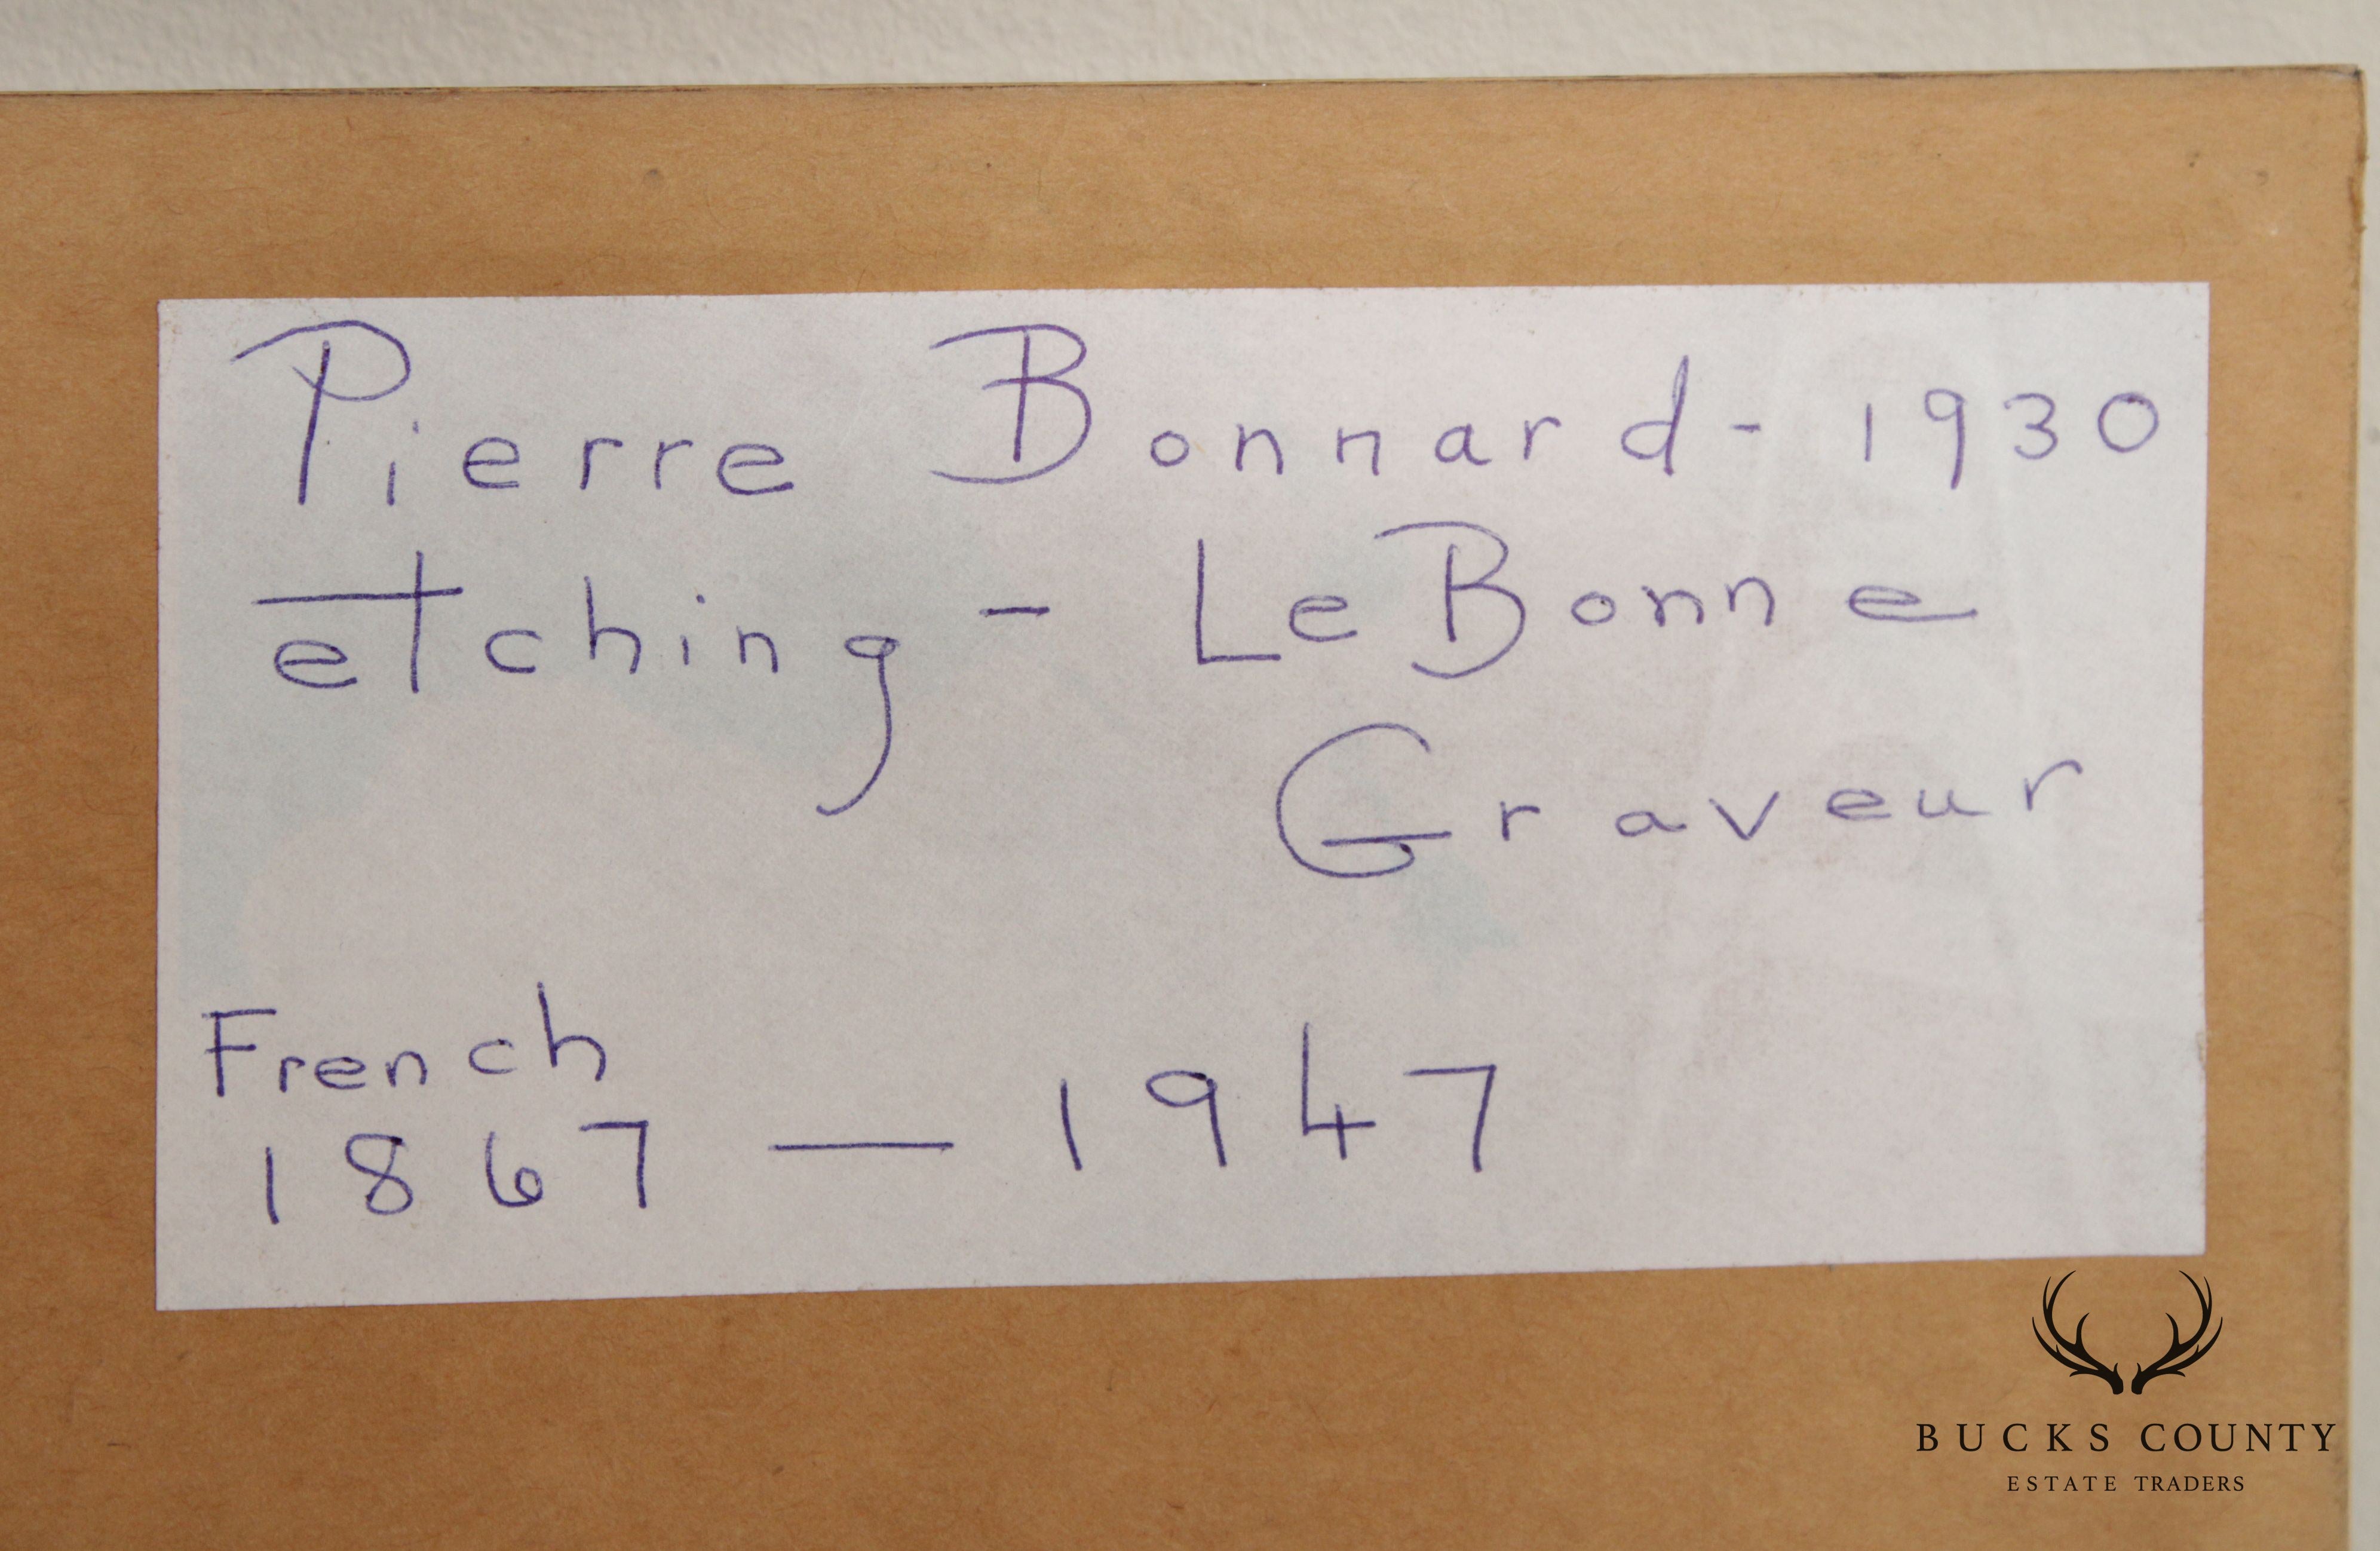 Pierre Bonnard - 1930
etching - Le Bonne
Graveur
French
1867 — 1947
BUCKS COUNTY
ESTATE TRADERS